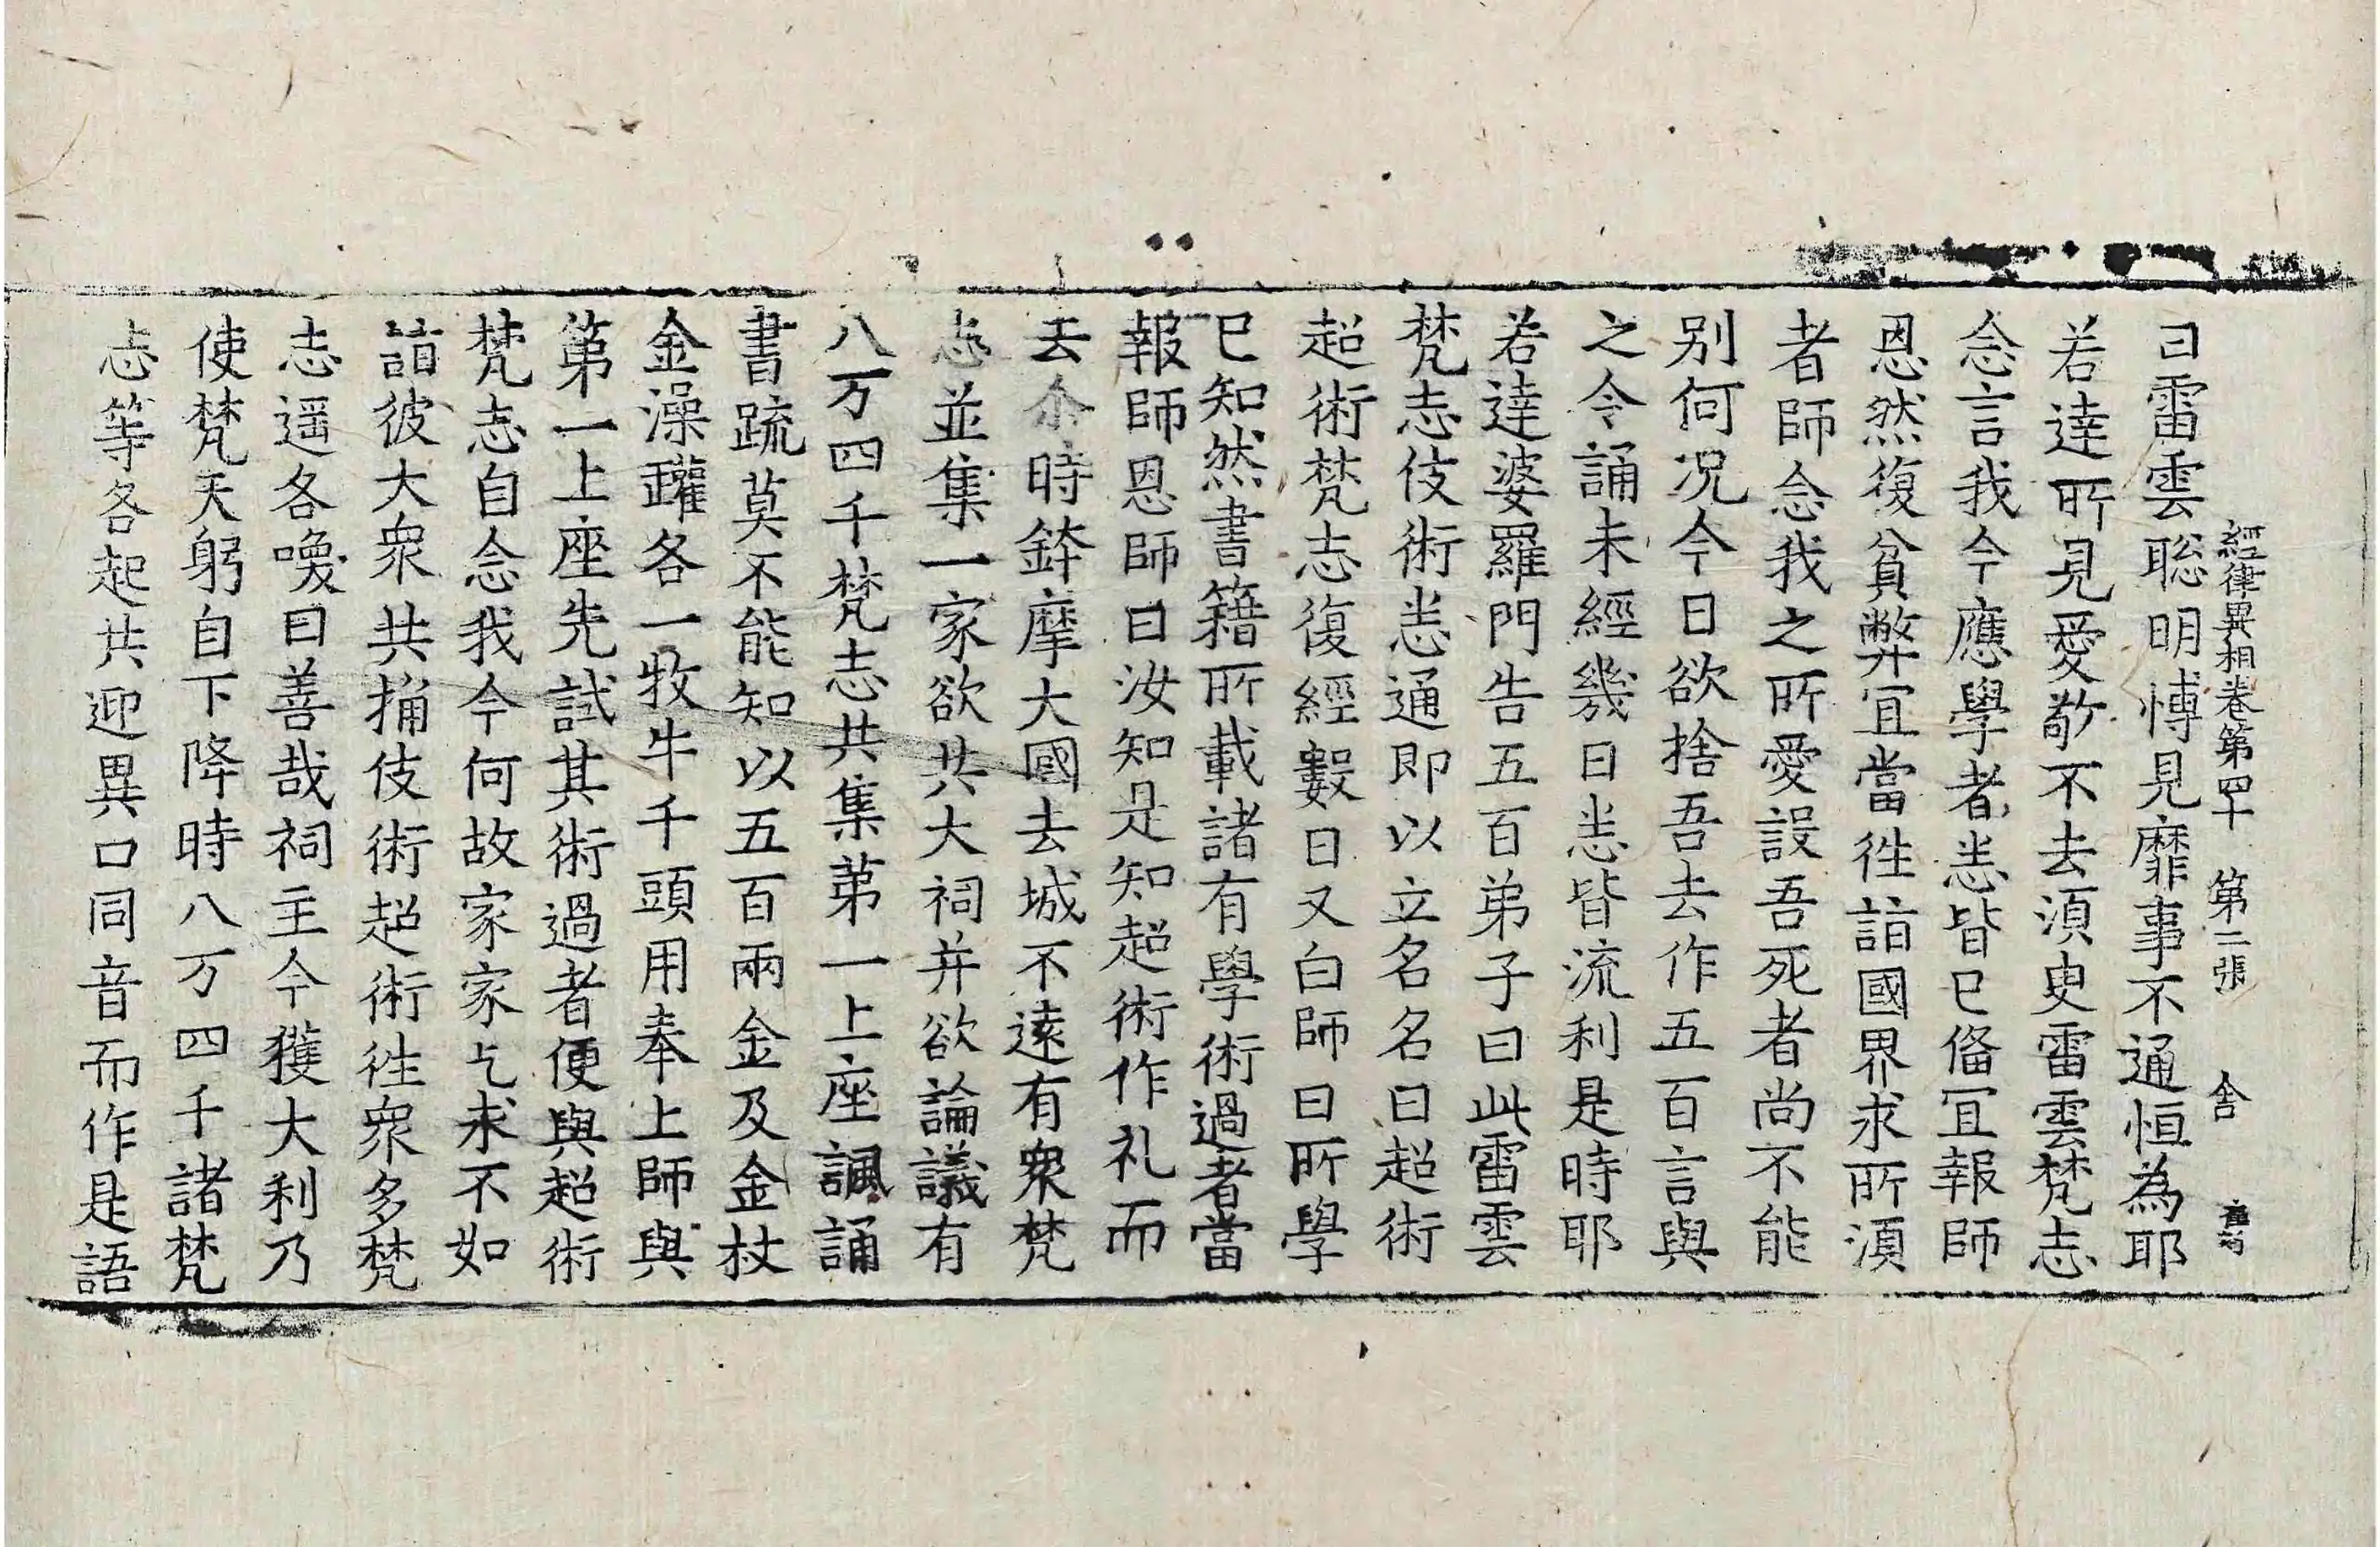 經律異相卷第四十 第二張 舍
曰雷雲聡明愽見靡事不通恒為耶
若達所見愛敬不去湏臾雷雲梵志
念言我今應學者悉皆已俻冝報師
恩然復貧弊冝當徃詣國界求所湏
者師念我之所愛設吾死者尚不能
别何况今日欲捨吾去作五百言與
之令誦未經幾日悉皆流利是時耶
若達婆羅門告五百弟子曰此雷雲
梵志伎術悉通即以立名名曰超術
超術梵志復經數日又白師曰所學
已知然書籍所載諸有學術過者當
報師恩師曰汝知是知超術作礼而
去尒時鉢摩大國去城不遠有衆梵
志並集一家欲共大祠并欲論議有
八万四千梵志共集苐一上座諷誦
書䟽莫不能知以五百兩金及金杖
金澡鑵各一牧牛千頭用奉上師與
第一上座先試其術過者便與超術
梵志自念我今何故家家乞求不如
詣彼大衆共捔伎術超術徃衆多梵
志遥各喚曰善哉祠主今獲大利乃
使梵天躬自下降時八万四千諸梵
志等各起共迎異口同音而作是語